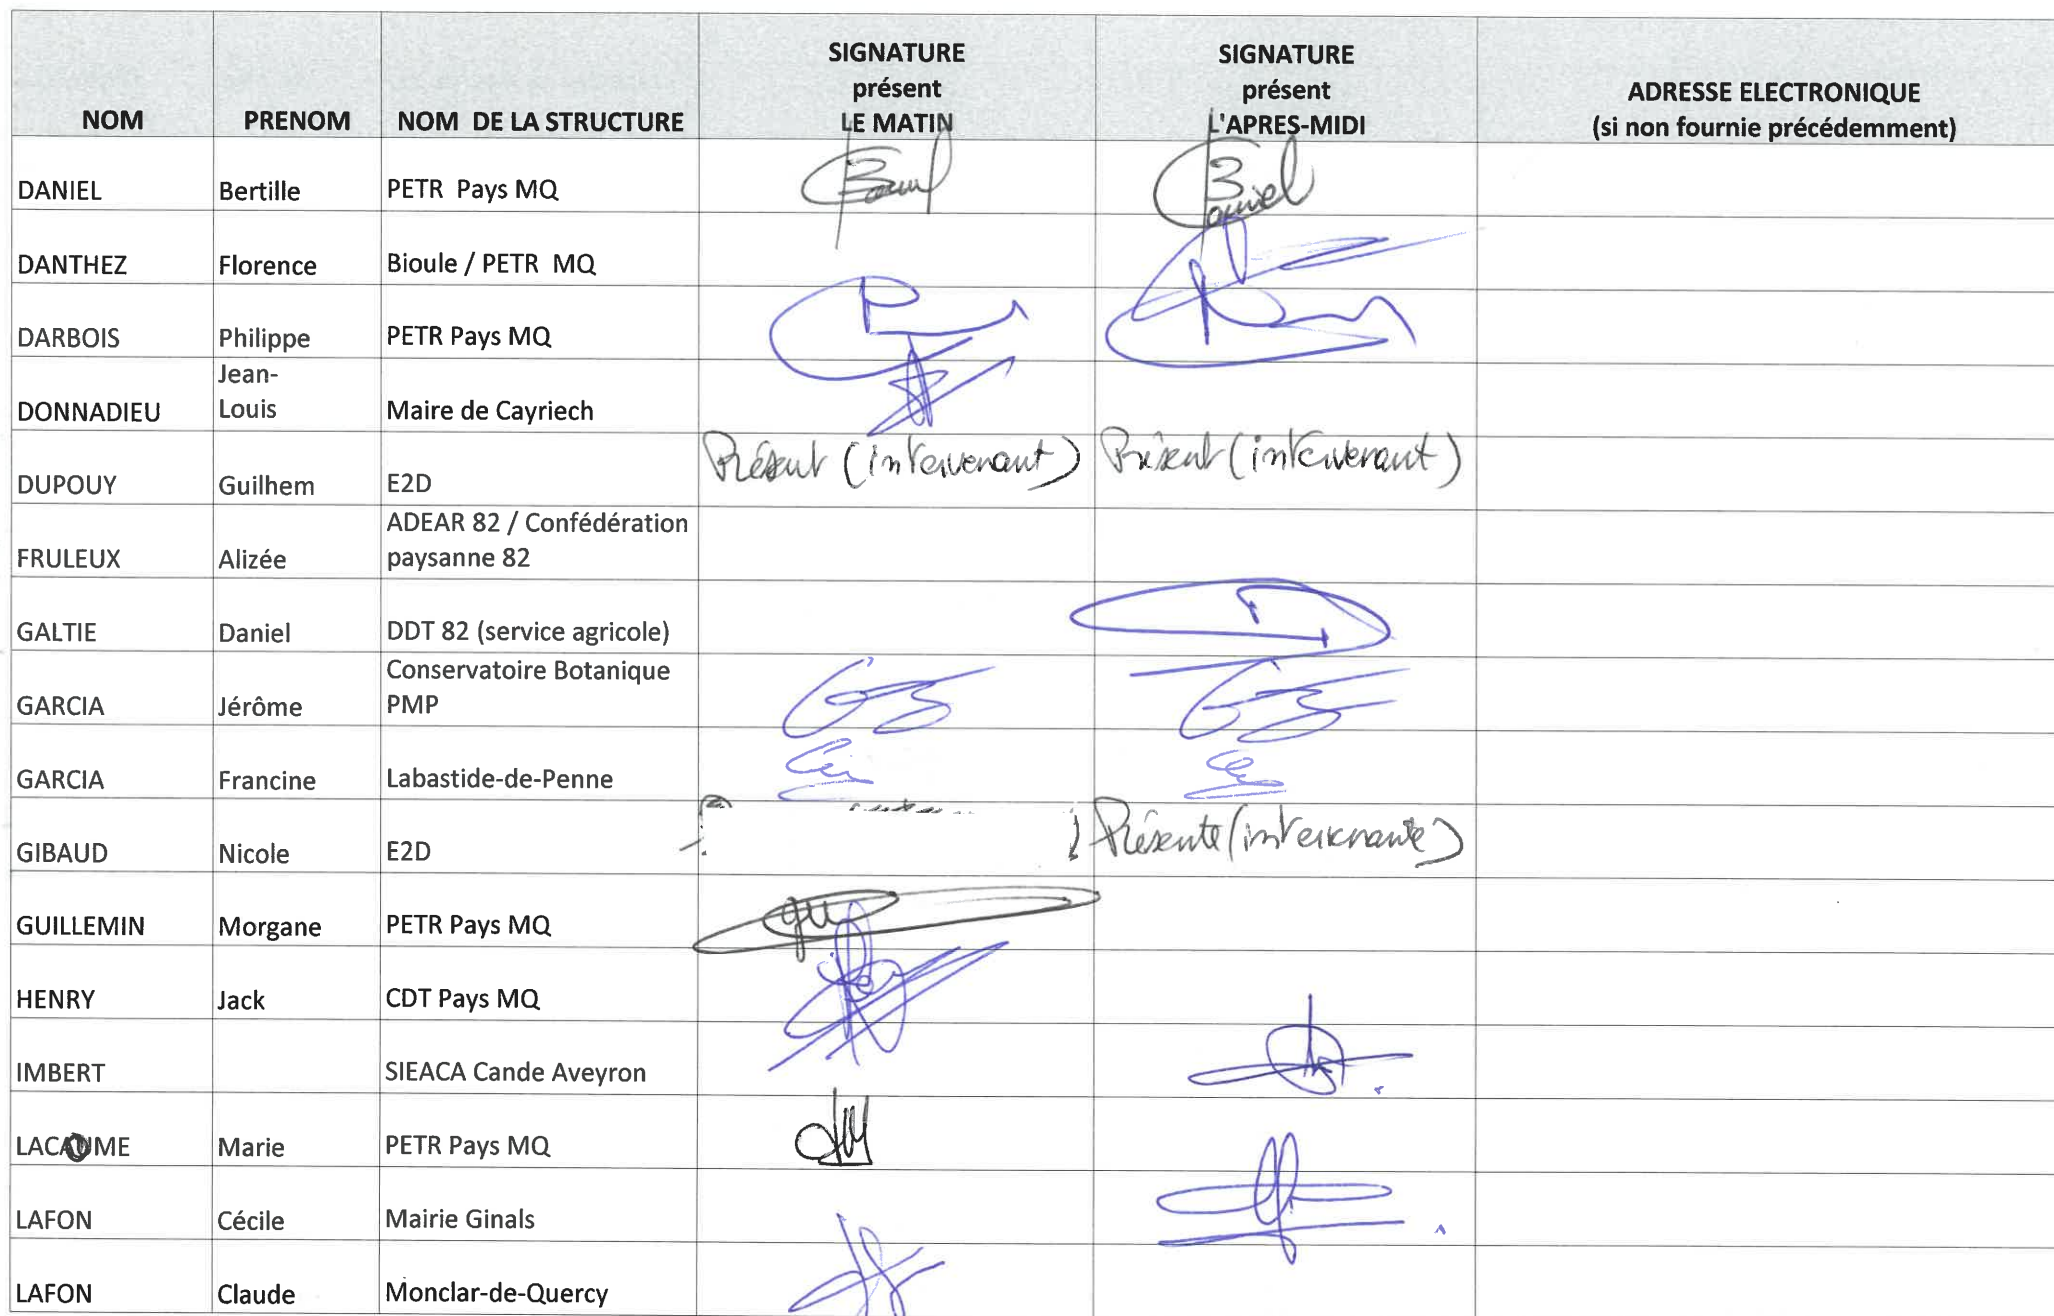 NOM PRENOM NOM DE LA STRUCTURE SIGNATURE présent LE MATIN SIGNATURE présent L'APRES-MIDI ADRESSE ELECTRONIQUE (si non fournie précédemment)
DANIEL Bertille PETR Pays MQ Daniel
DANTHEZ Florence Bioule / PETR MQ
DARBOIS Philippe PETR Pays MQ
DONNADIEU Jean-Louis Maire de Cayriech
DUPOUY Guilhem E2D Présent (intervenant) Présent (intervenant)
FRULEUX Alizée ADEAR 82 / Confédération paysanne 82
GALTIE Daniel DDT 82 (service agricole)
GARCIA Jérôme Conservatoire Botanique PMP
GARCIA Francine Labastide-de-Penne
GIBAUD Nicole E2D Présente (intervenante)
GUILLEMIN Morgane PETR Pays MQ
HENRY Jack CDT Pays MQ
IMBERT SIEACA Cande Aveyron
Marie PETR Pays MQ
LAFON Cécile Mairie Ginals
LAFON Claude Monclar-de-Quercy